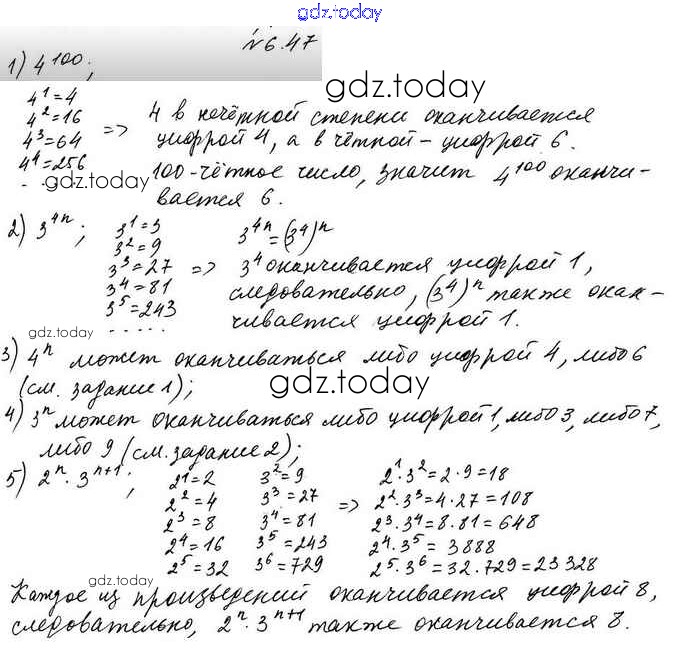 gdz.today
№6.47
1) 4^100;
gdz.today
4^1=4
4^2=16
4^3=64
4^4=256
.....
=> 4 в нечётной степени оканчивается
цифрой 4, а в чётной - цифрой 6.
100-чётное число, значит 4^100 оканчи-
вается 6.
gdz.today
2) 3^4n; 3^1=3 3^4n=(3^4)^n
3^2=9
3^3=27 => 3^4 оканчивается цифрой 1,
3^4=81 следовательно, (3^4)^n также окан-
3^5=243 чивается цифрой 1.
.....
gdz.today
3) 4^n может оканчиваться либо цифрой 4, либо 6
(см. задание 1);
gdz.today
4) 3^n может оканчиваться либо цифрой 1, либо 3, либо 7,
либо 9 (см. задание 2);
5) 2^n · 3^n+1; 2^1=2 3^2=9 2^1·3^2=2·9=18
2^2=4 3^3=27 => 2^2·3^3=4·27=108
2^3=8 3^4=81 2^3·3^4=8·81=648
2^4=16 3^5=243 2^4·3^5=3888
2^5=32 3^6=729 2^5·3^6=32·729=23328
gdz.today
Каждое из произведений оканчивается цифрой 8,
следовательно, 2^n·3^n+1 также оканчивается 8.